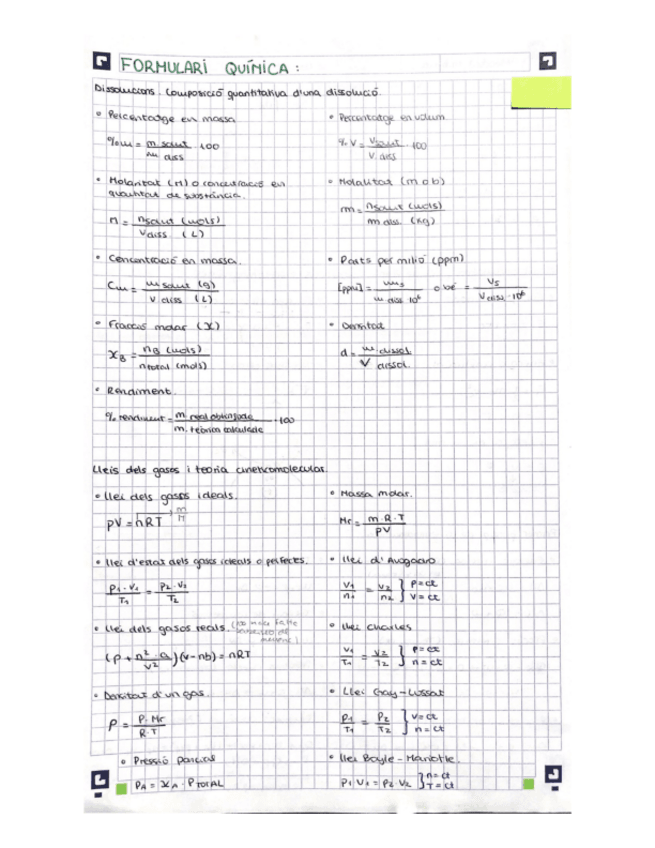 FORMULARI QUÍMICA:
Dissolucions. Composició quantitativa d'una dissolució.
• Percentatge en massa
%m = m solut / m diss · 100
• Percentatge en volum
% V = V solut / V diss · 100
• Molaritat (M) o concentració en
quantitat de substància.
M = n solut (mols) / V diss (L)
• Molalitat (m o b)
m = n solut (mols) / m diss. (kg)
• Concentració en massa.
Cm = m solut (g) / V diss (L)
• Parts per milió (ppm)
[ppm] = ms / m diss 10⁶ o bé = Vs / V diss · 10⁶
• Fracció molar (X)
XB = nB (mols) / n total (mols)
• Densitat
d = m dissol. / V dissol.
• Rendiment.
% rendiment = m real obtinguda / m. teòrica calculada · 100
Lleis dels gasos i teoria cineticomolecular.
• Llei dels gasos ideals.
pV = nRT → m / M
• Massa molar.
Mr = m · R · T / pV
• Llei d'estat dels gasos ideals o perfectes.
P1 · V1 / T1 = P2 · V2 / T2
• Llei d'Avogadro
V1 / n1 = V2 / n2 } P = ct
V = ct
• Llei dels gasos reals. (no més falta
(p + n² · a / V²)(V - nb) = nRT
• Llei Charles
V1 / T1 = V2 / T2 } P = ct
n = ct
• Densitat d'un gas.
ρ = P · Mr / R · T
• Llei Gay-Lussac
P1 / T1 = P2 / T2 } V = ct
n = ct
• Pressió parcial
PA = XA · P TOTAL
• Llei Boyle-Mariotte.
P1 V1 = P2 V2 } n = ct
T = ct